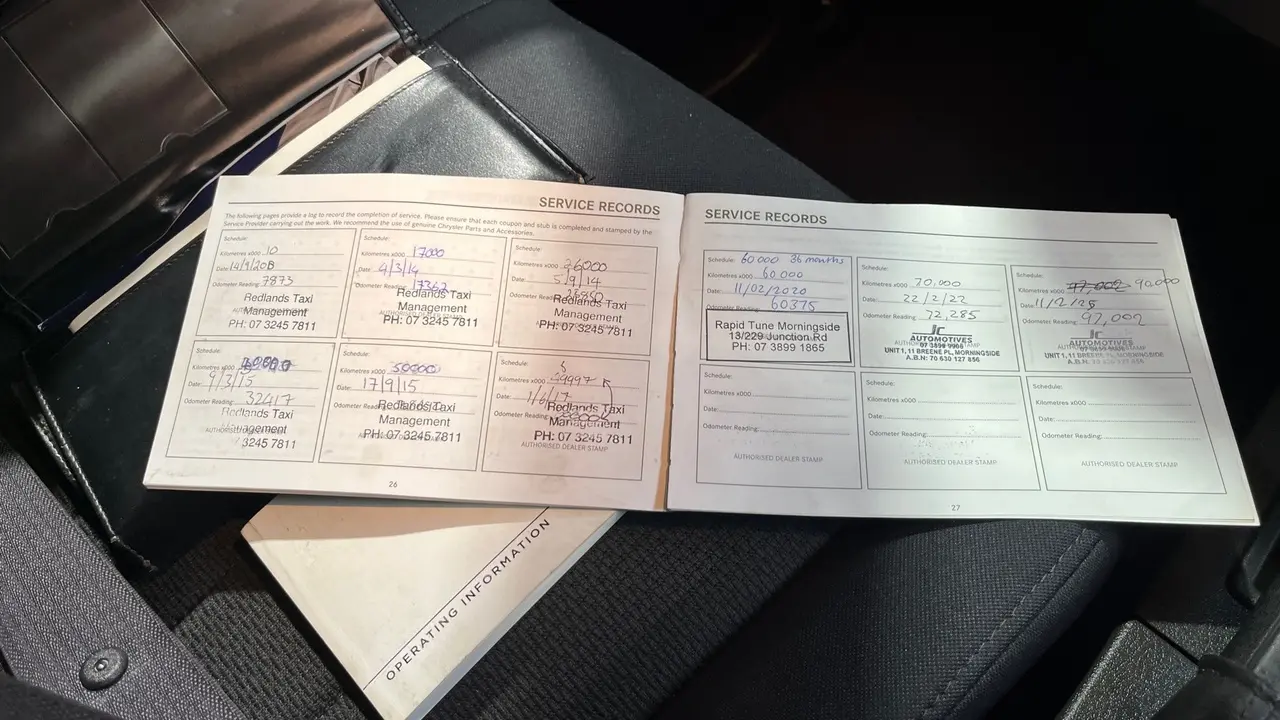 SERVICE RECORDS
The following pages provide a log to record the completion of service. Please ensure that each coupon and stub is completed and stamped by the
Service Provider carrying out the work. We recommend the use of genuine Chrysler Parts and Accessories.
Schedule:
Kilometres x000 10
Date: 14/9/20B
Odometer Reading: 7873
Redlands Taxi
Management
PH: 07 3245 7811
Schedule:
Kilometres x000 17000
Date: 4/3/14
Odometer Reading: 17362
Redlands Taxi
Management
PH: 07 3245 7811
Schedule:
Kilometres x000 26000
Date: 5/9/14
Odometer Reading:
Redlands Taxi
Management
PH: 07 3245 7811
Schedule:
Kilometres x000
Date: 9/3/15
Odometer Reading: 32417
Redlands Taxi
Management
3245 7811
Schedule:
Kilometres x000 50000
Date: 17/9/15
Redlands Taxi
Management
PH: 07 3245 7811
Schedule:
Kilometres x000 39997
Date: 1/6/17
Odometer Reading:
Redlands Taxi
Management
PH: 07 3245 7811
AUTHORISED DEALER STAMP
26
SERVICE RECORDS
Schedule: 60 000 36 months
Kilometres x000 60 000
Date: 11/02/2020
Odometer Reading: 60375
Rapid Tune Morningside
13/229 Junction Rd
PH: 07 3899 1865
Schedule:
Kilometres x000 70,000
Date: 22/2/22
Odometer Reading: 72,285
Jc
AUTOMOTIVES
07 3899 9908
UNIT 1, 11 BREENE PL, MORNINGSIDE
A.B.N: 70 630 127 856
Schedule:
Kilometres x000 97,002 90,000
Date: 11/2/25
Odometer Reading: 97,002
Jc
AUTOMOTIVES
UNIT 1, 11 BREENE PL, MORNINGSIDE
A.B.N: 70 630 127 856
Schedule:
Kilometres x000
Date:
Odometer Reading:
AUTHORISED DEALER STAMP
Schedule:
Kilometres x000
Date:
Odometer Reading:
AUTHORISED DEALER STAMP
Schedule:
Kilometres x000
Date:
Odometer Reading:
AUTHORISED DEALER STAMP
27
OPERATING INFORMATION